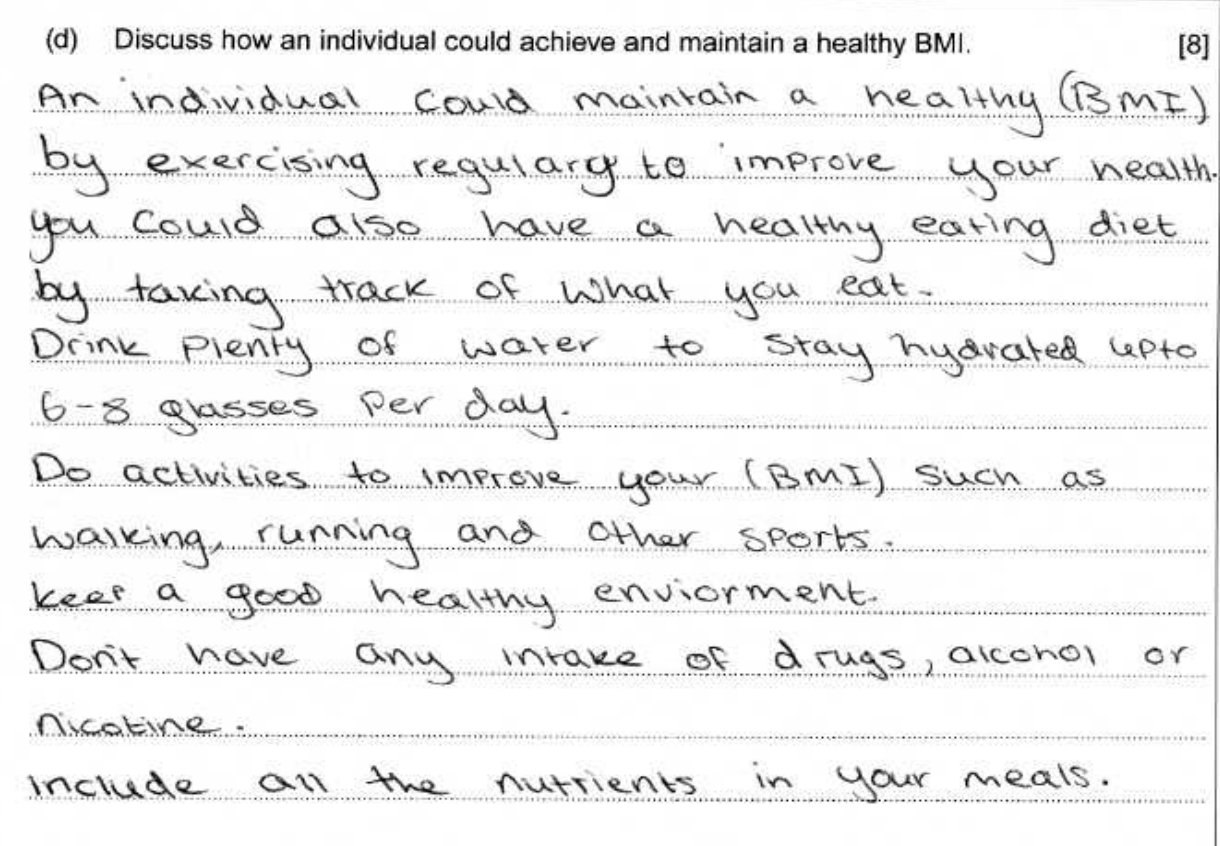 (d) Discuss how an individual could achieve and maintain a healthy BMI. [8]
An individual could maintain a healthy (BMI)
by exercising regulary to improve your health.
you could also have a healthy eating diet
by taking track of what you eat.
Drink plenty of water to stay hydrated upto
6-8 glasses per day.
Do activities to improve your (BMI) such as
walking, running and other sports.
keep a good healthy enviorment.
Don't have any intake of drugs, alcohol or
nicotine.
include all the nutrients in your meals.